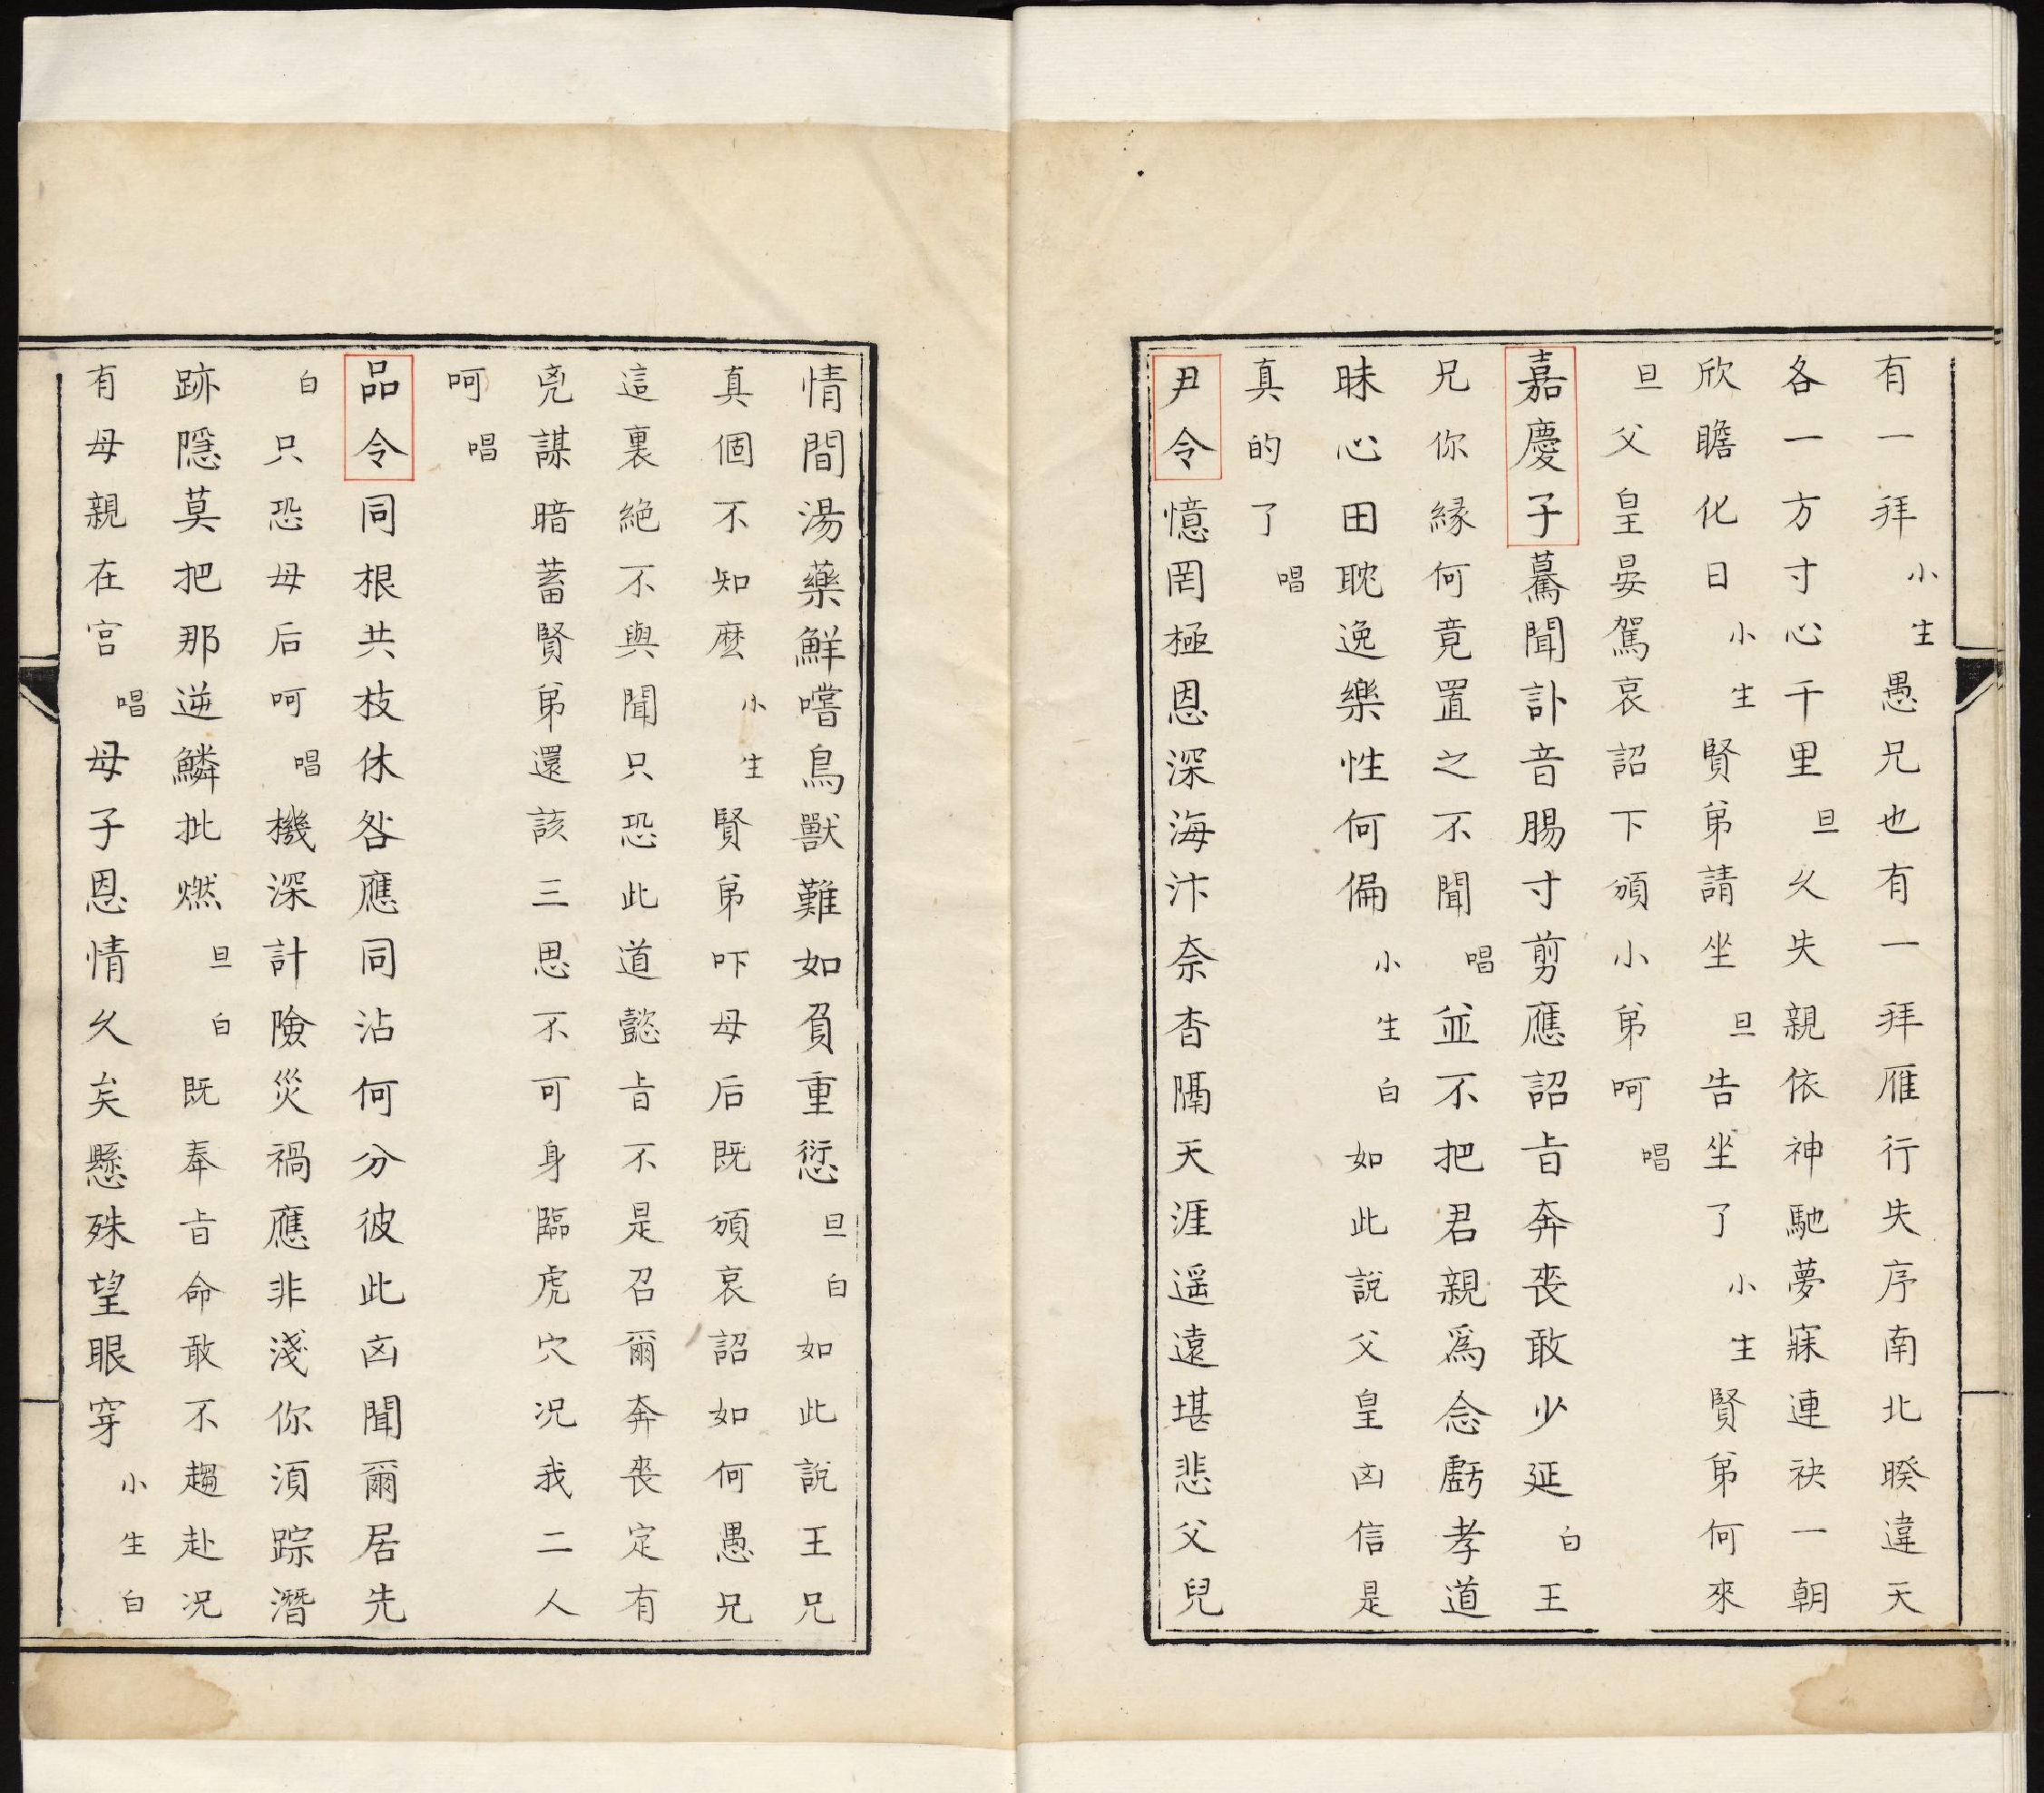 有一拜小生愚兄也有一拜雁行失序南北暌違天
各一方寸心千里旦久失親依神馳夢寐連袂一朝
欣瞻化日小生賢弟請坐旦告坐了小生賢弟何來
旦父皇晏駕哀詔下頒小弟呵唱
嘉慶子驀聞訃音腸寸剪應詔旨奔喪敢少延白王
兄你緣何竟置之不聞唱並不把君親爲念虧孝道
昧心田耽逸樂性何偏小生白如此說父皇凶信是
真的了唱
尹令憶罔極恩深海汴奈杳隔天涯遥遠堪悲父兒
情間湯藥鮮嚐鳥獸難如負重愆旦白如此說王兄
真個不知麽小生賢弟吓母后既頒哀詔如何愚兄
這裏絶不與聞只恐此道懿旨不是召爾奔喪定有
兇謀暗蓄賢弟還該三思不可身臨虎穴况我二人
呵唱
品令同根共枝休咎應同沾何分彼此凶聞爾居先
白只恐母后呵唱機深計險災禍應非淺你湏踪潛
跡隱莫把那逆鱗批燃旦白既奉旨命敢不趨赴况
有母親在宫唱母子恩情久矣懸殊望眼穿小生白